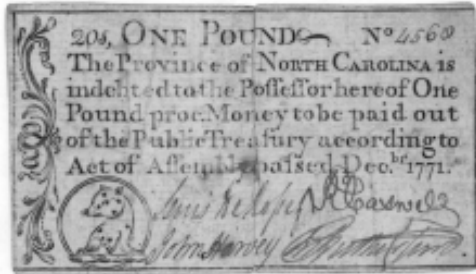 20s, ONE POUND No 4560
The Province of NORTH CAROLINA is
indebted to the Poſſeſſor hereof One
Pound proc. Money to be paid out
of the Public Treaſury according to
Act of Aſſembly paſsed Dec.br 1771.
Lewis De Roſſet R Caswell
John Harvey Rutherfurd